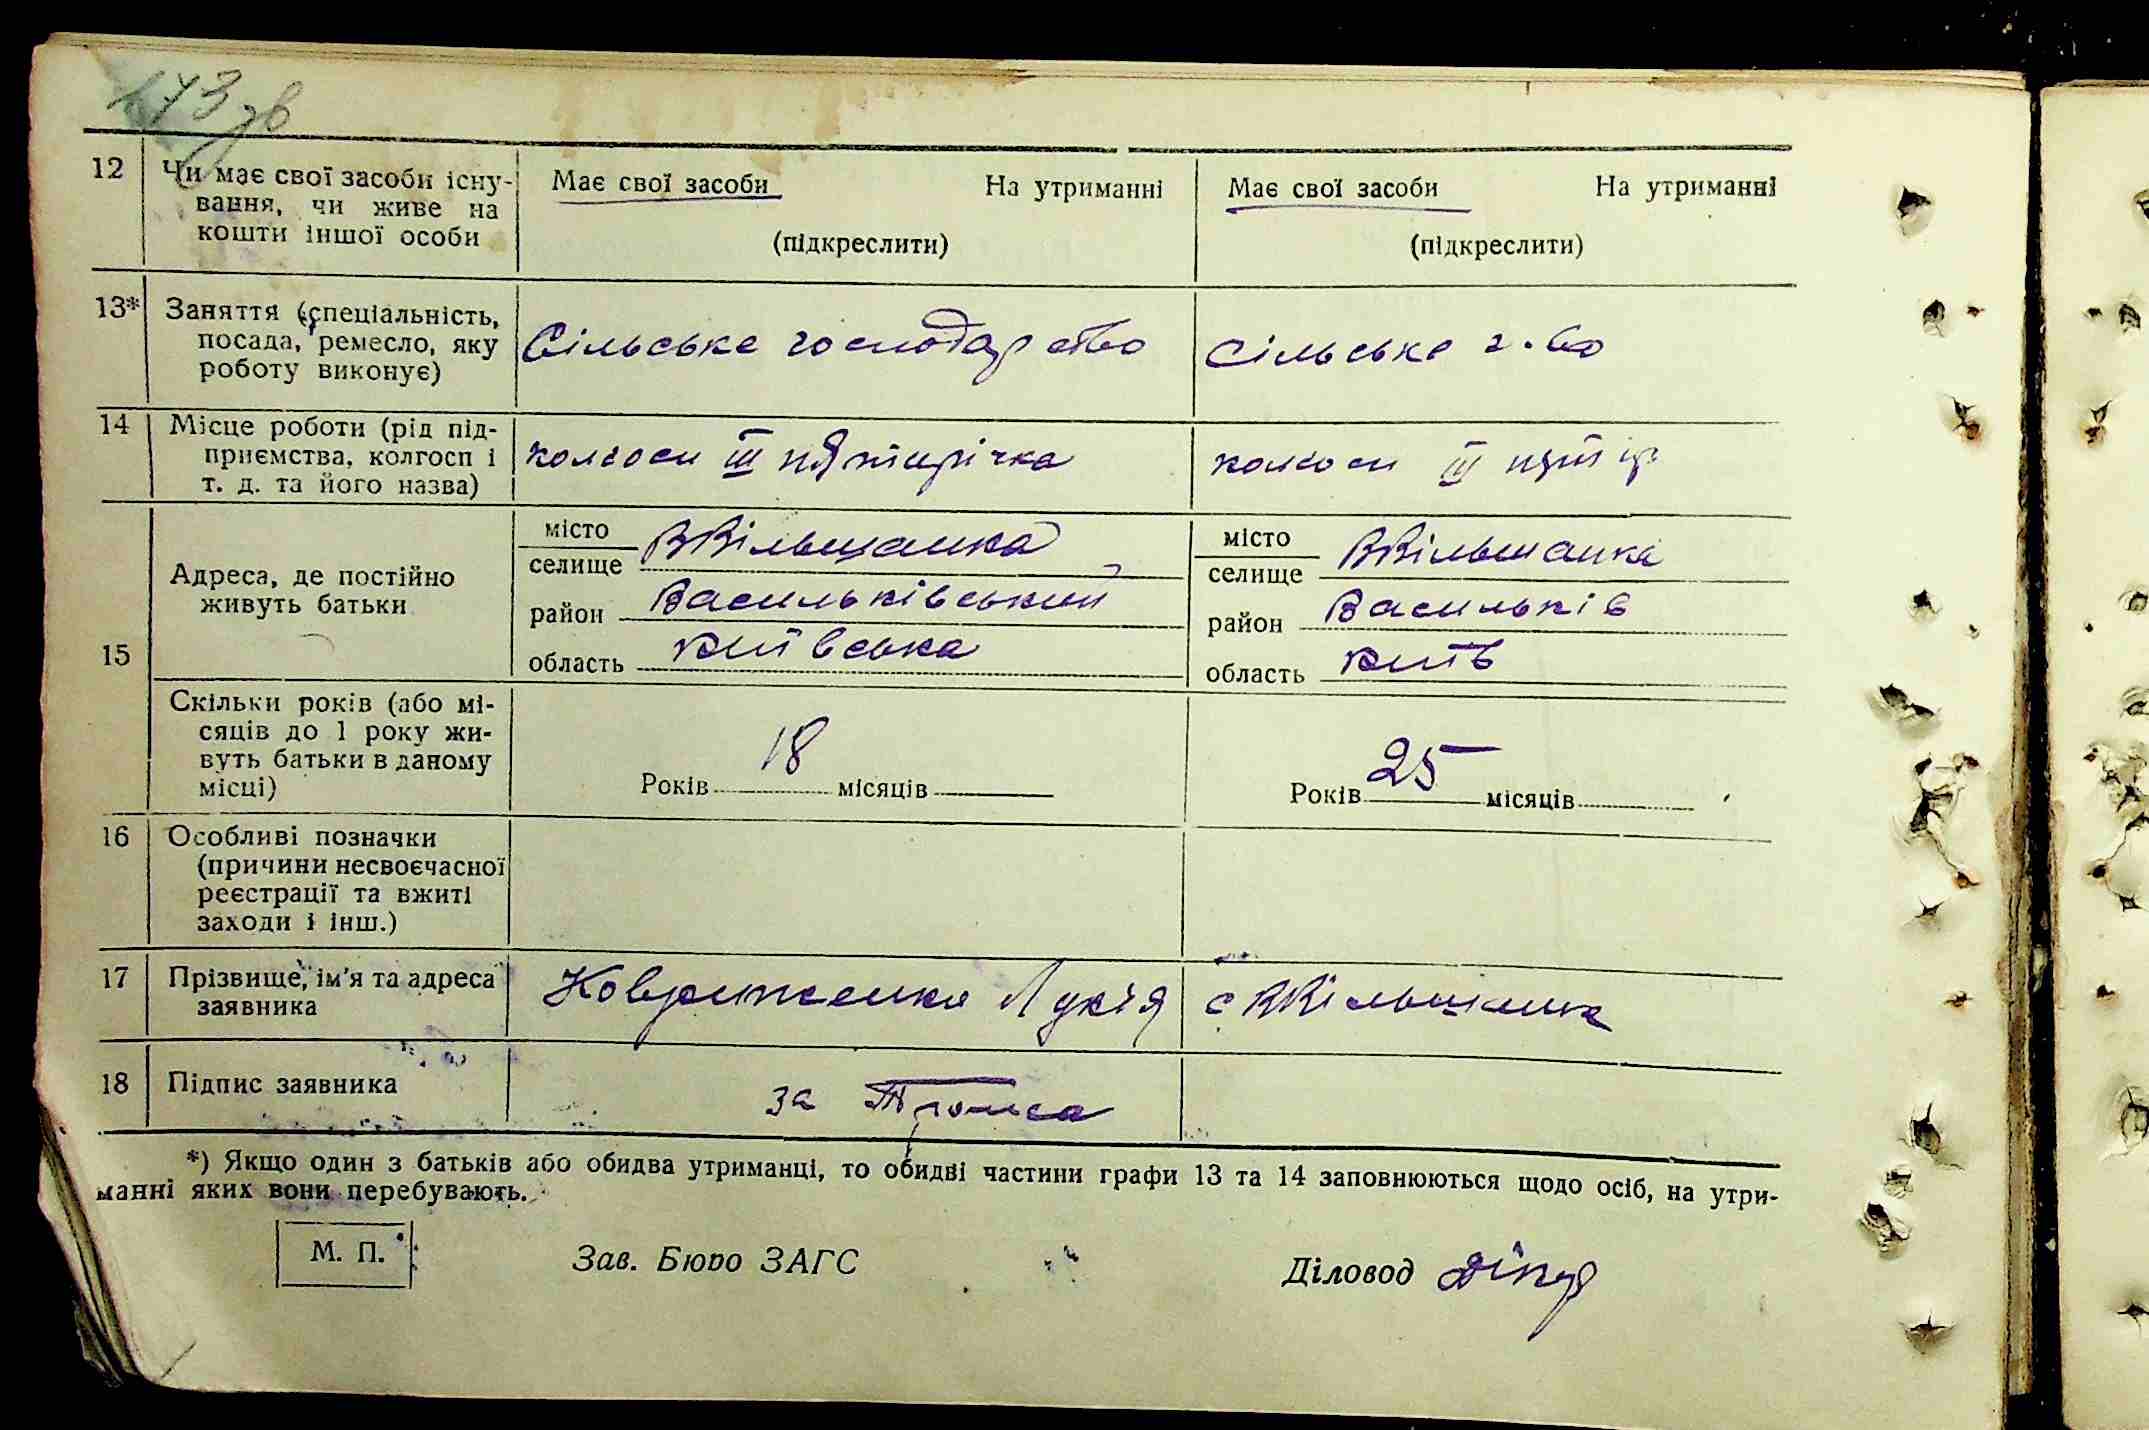 173 зв
12 Чи має свої засоби існу- Має свої засоби На утриманні Має свої засоби На утриманні
вання, чи живе на
кошти іншої особи (підкреслити) (підкреслити)
13* Заняття (спеціальність,
посада, ремесло, яку Сільське господарство Сільське г-во
роботу виконує)
14 Місце роботи (рід під-
приємства, колгосп і колгосп III пятирічка колгосп III
т. д. та його назва)
15 Адреса, де постійно
живуть батьки
місто ВВільшанка місто ВВільшанка
селище селище
район Васильківський район Васильків
область Київська область Київ
Скільки років (або мі-
сяців до 1 року жи-
вуть батьки в даному
місці)
Років 18 місяців Років 25 місяців
16 Особливі позначки
(причини несвоєчасної
реєстрації та вжиті
заходи і інш.)
17 Прізвище, ім'я та адреса Ковриженко Лукія с ВВільшанка
заявника
18 Підпис заявника за
*) Якщо один з батьків або обидва утриманці, то обидві частини графи 13 та 14 заповнюються щодо осіб, на утри-
манні яких вони перебувають.
М. П. Зав. Бюро ЗАГС Діловод